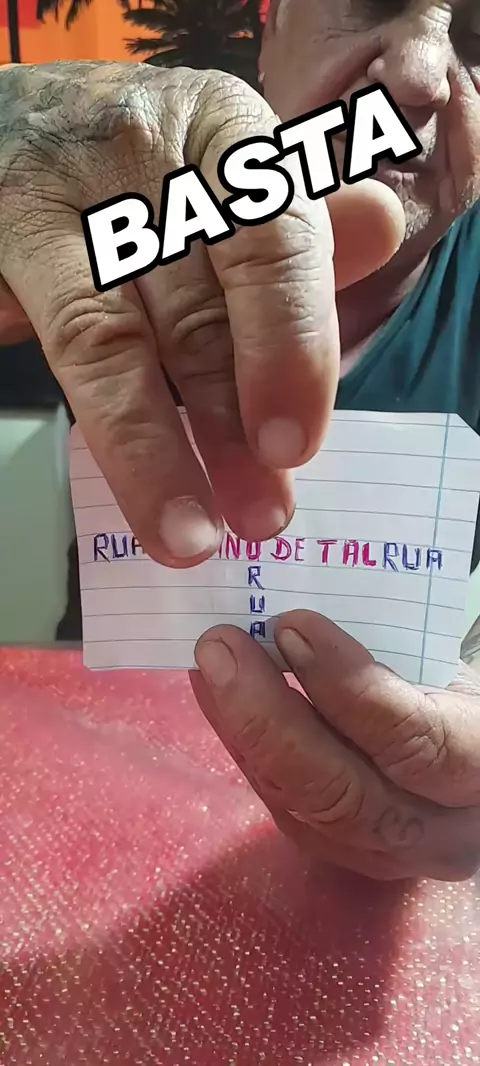 BASTA
RUA INO DE TAL RUA
R
U
A